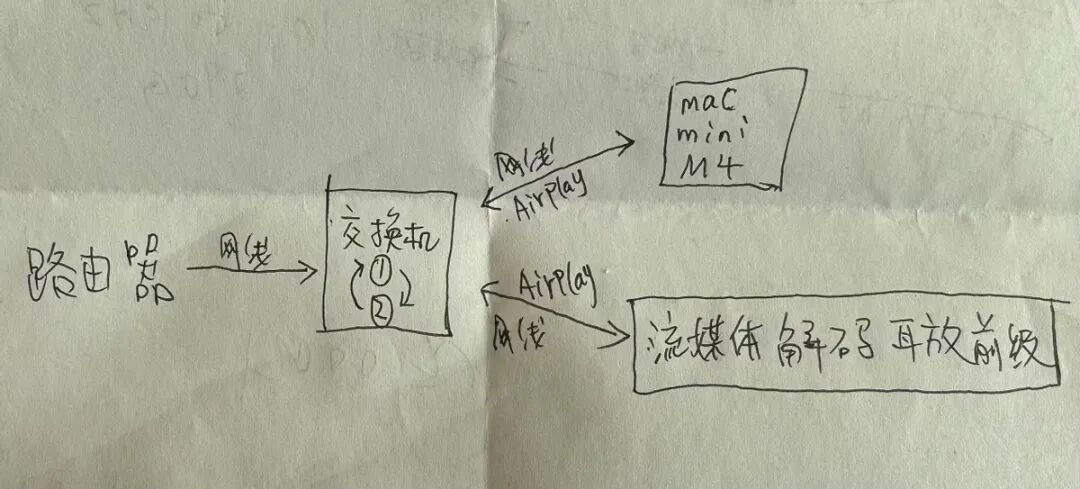 mac
mini
M4
网线
Airplay
路由器
网线
交换机
①
②
Airplay
网线
流媒体解码耳放前级